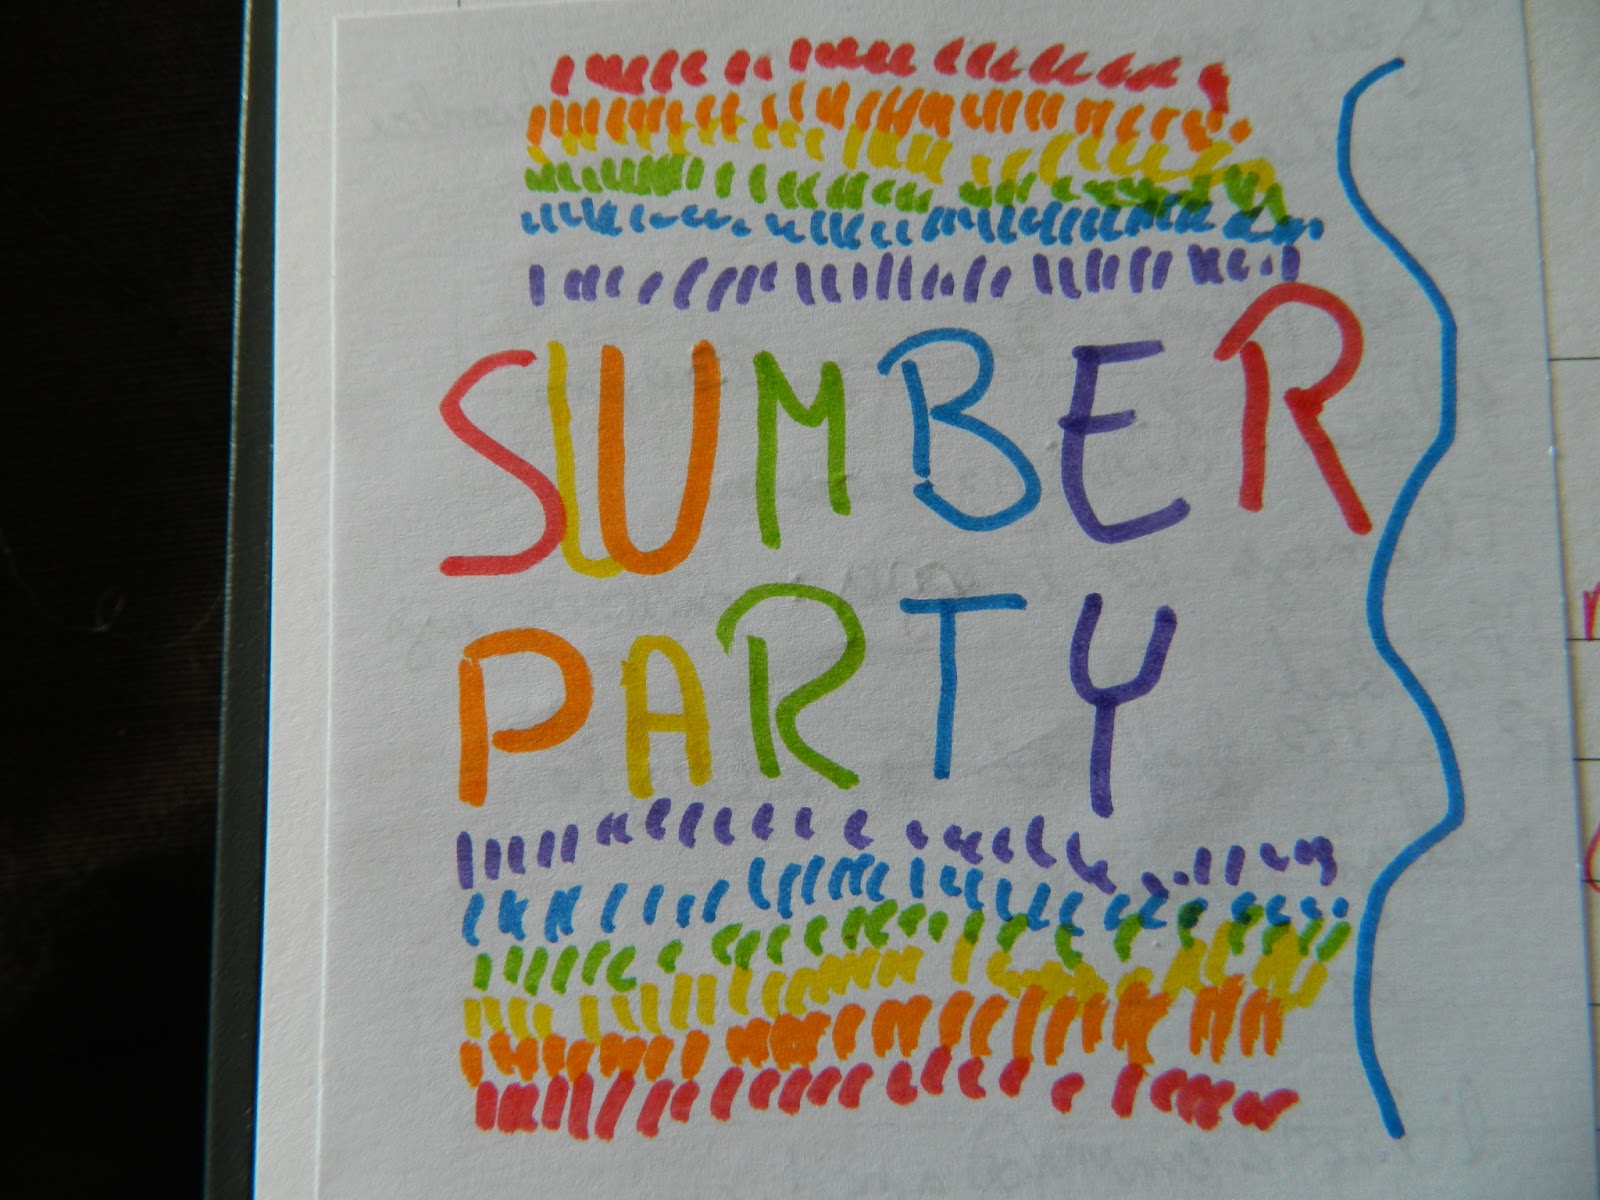 SLUMBER
PARTY